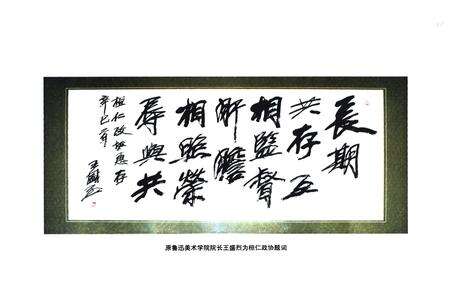 長期
共存互
相監督
肝膽
相照榮
辱與共
桓仁政協惠存
辛巳
王盛烈
原鲁迅美术学院院长王盛烈为桓仁政协题词